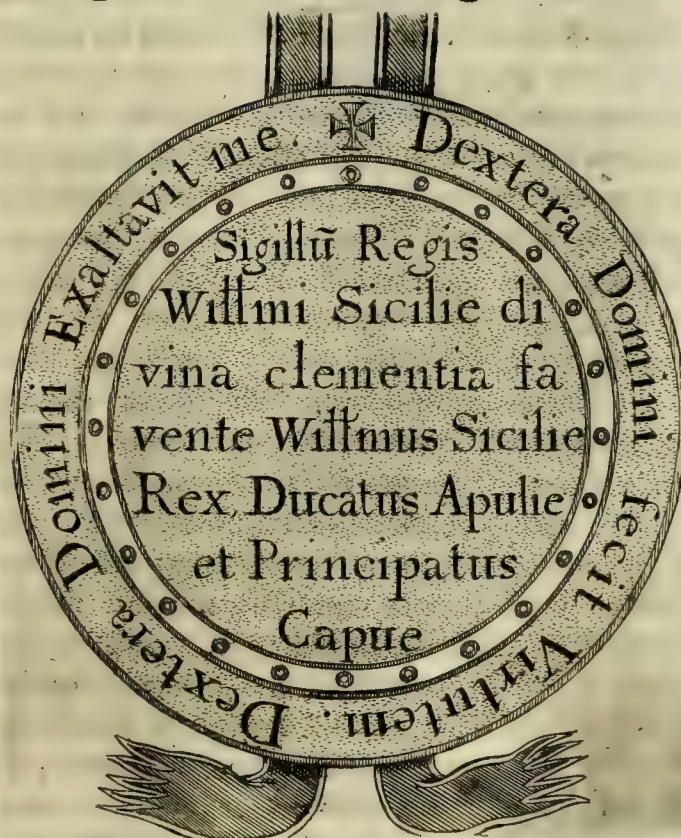 ✠ Dextera Domini fecit Virtutem. Dextera Domini Exaltavit me.
Sigillũ Regis
Willmi Sicilie di
vina clementia fa
vente Willmus Sicilie
Rex, Ducatus Apulie
et Principatus
Capue